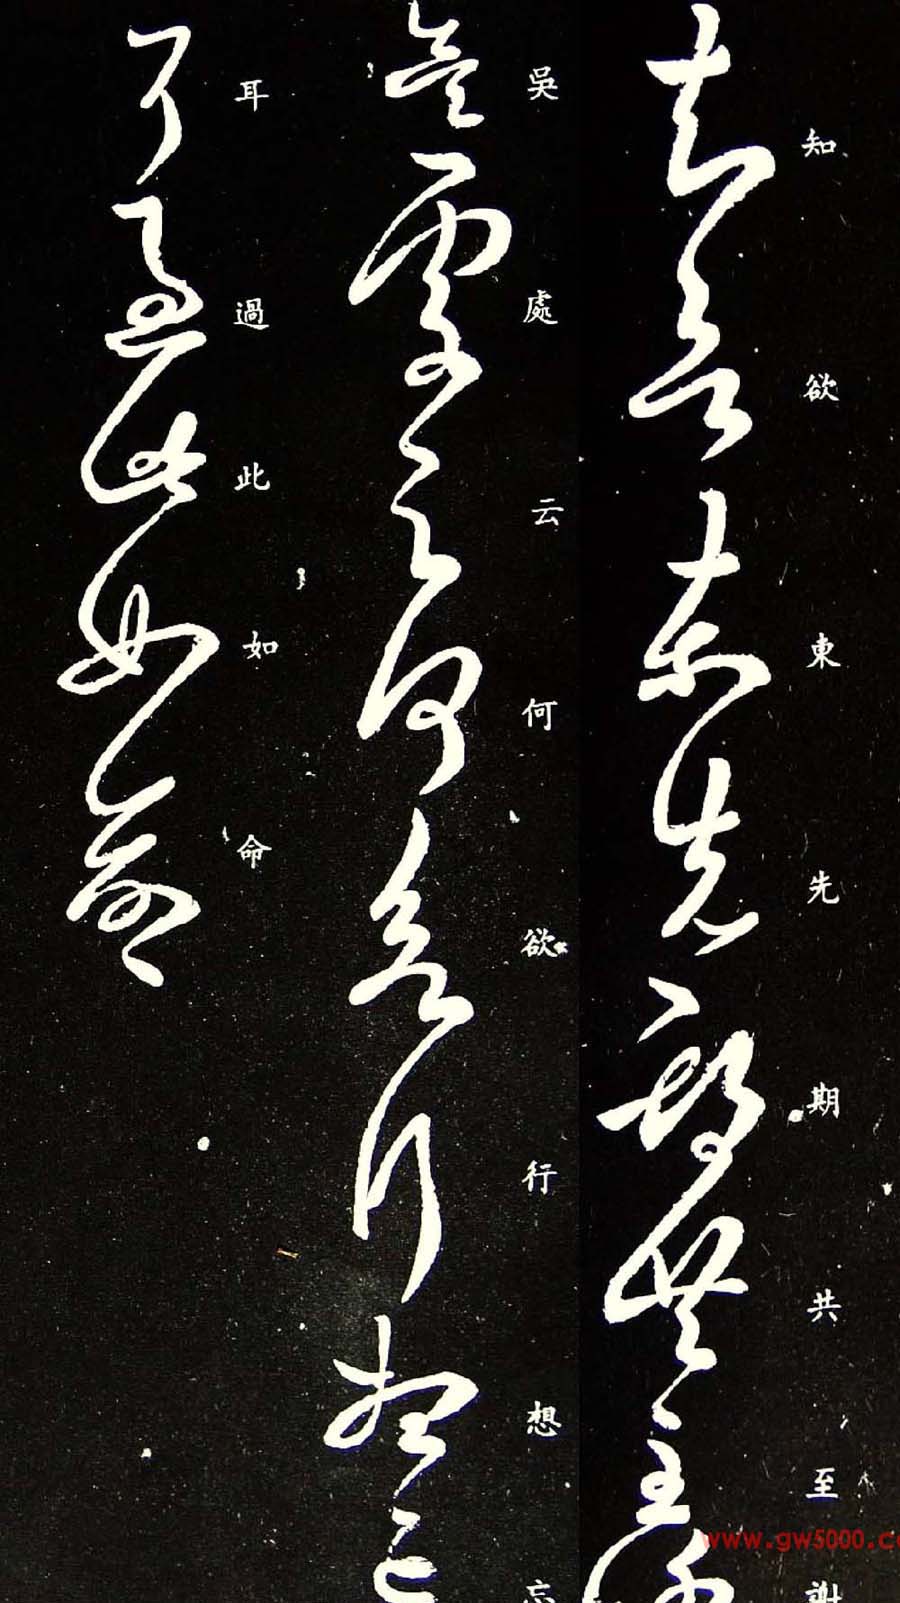 知欲東先期共至謝
吳處云何欲行想忘
耳過此如命
www.gw5000.c